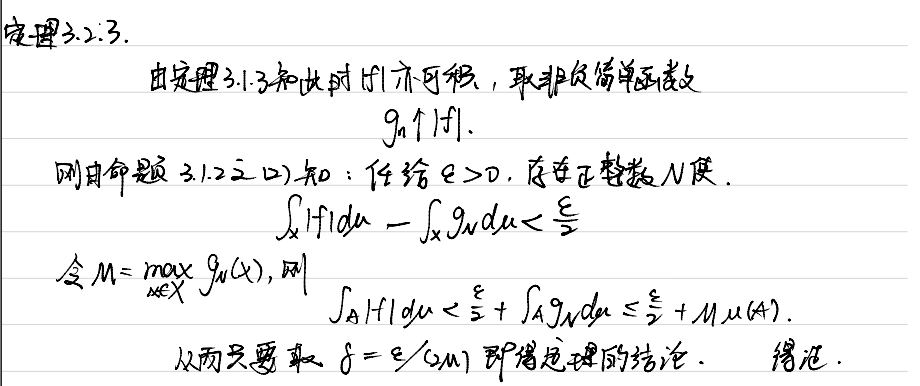 定理3.2.3.
由定理3.1.3知此时|f|亦可积,取非负简单函数
gₙ↑|f|.
则由命题3.1.2之(2)知:任给ε>0.存在正整数N使.
∫_X|f|dμ - ∫_X g_N dμ < ε/2
令M=max_{x∈X} g_N(x),则
∫_A|f|dμ < ε/2 + ∫_A g_N dμ ≤ ε/2 + Mμ(A).
从而只要取 δ=ε/(2M) 即得定理的结论. 得证.